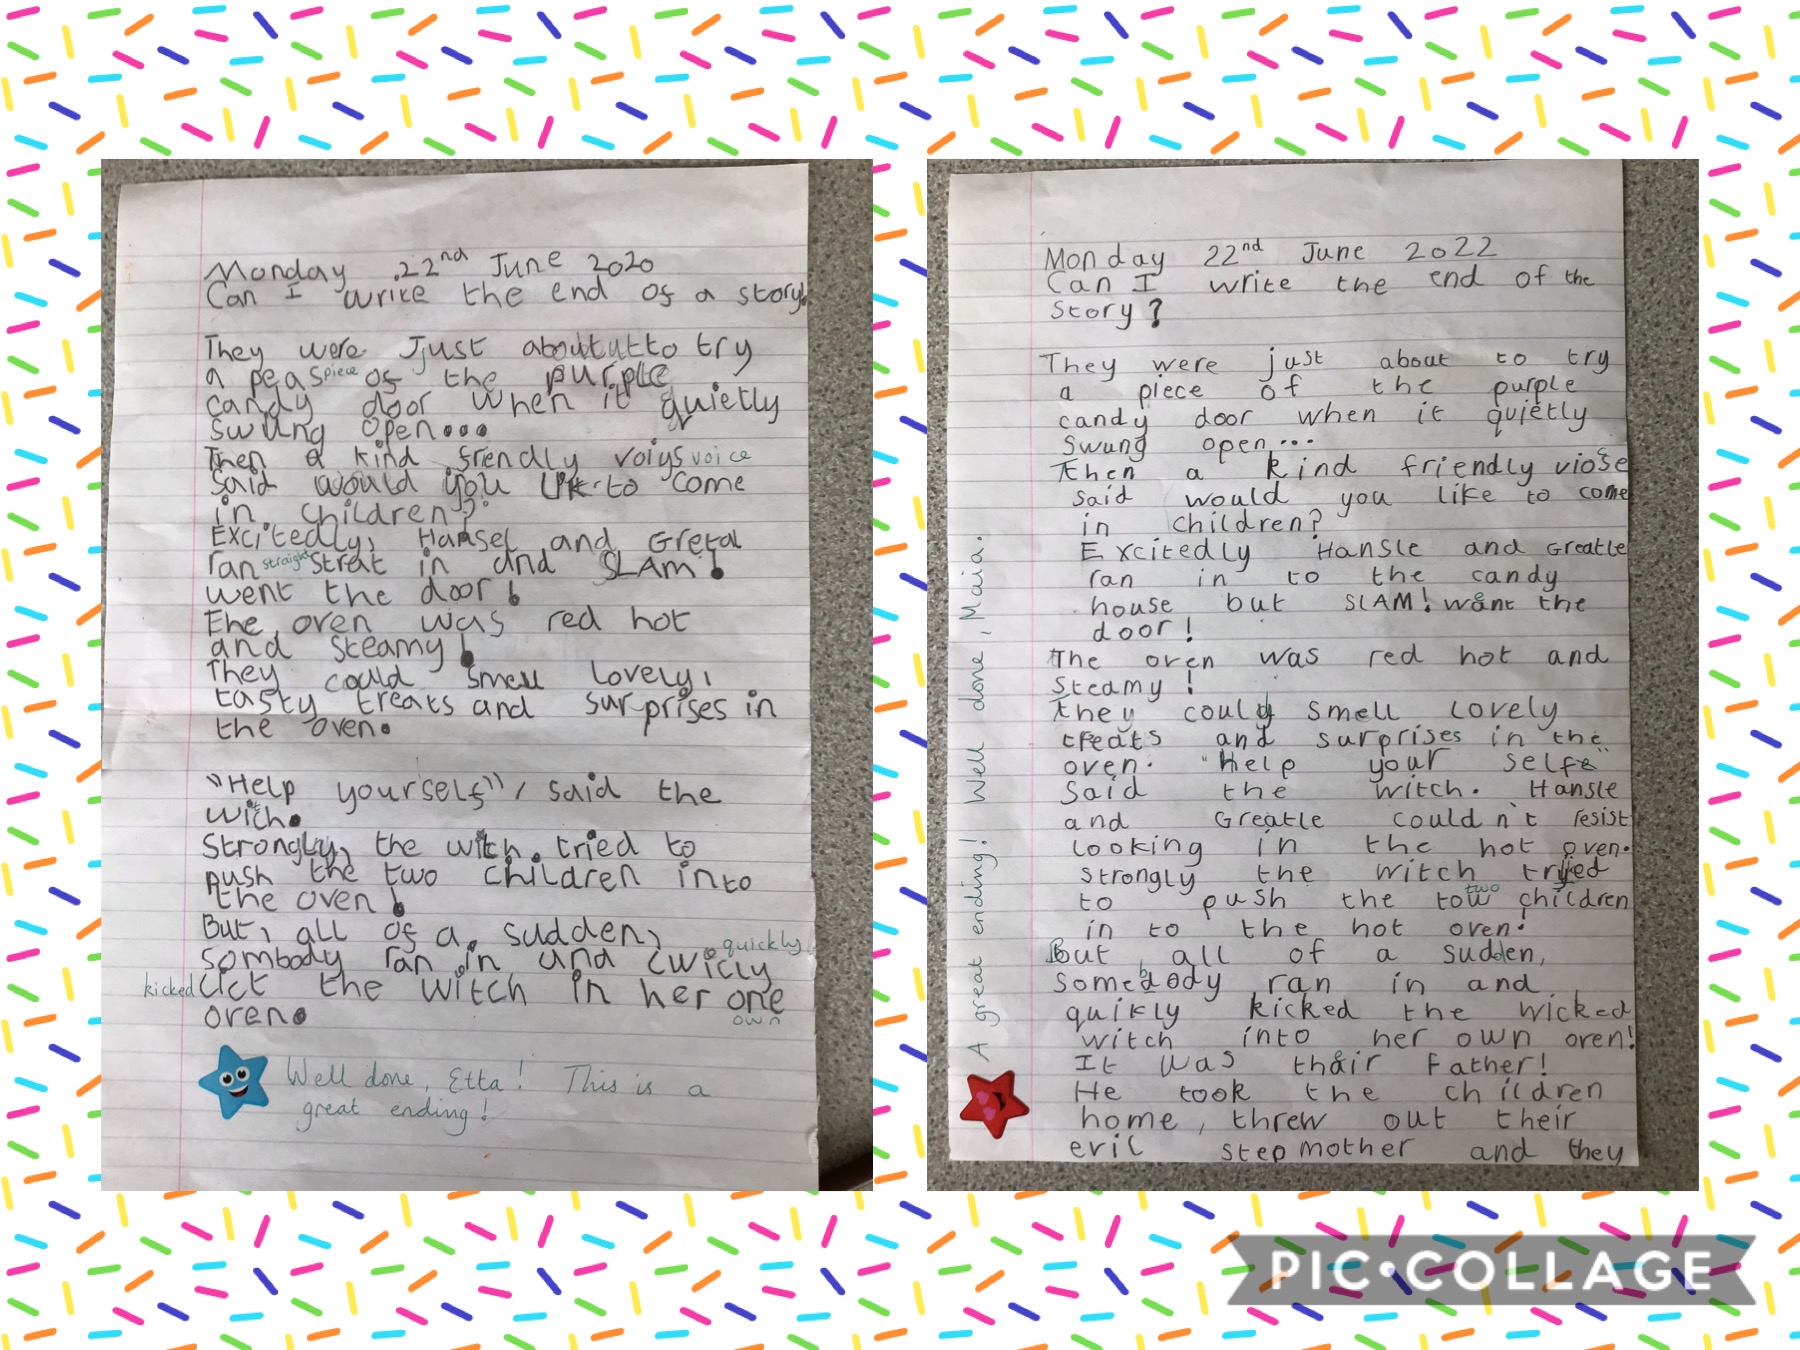 Monday 22nd June 2020
Can I write the end of a story?
They were Just about to try
a peas piece of the purple
candy door when it quietly
swung open...
Then a kind friendly voiys voice
said would you lik to come
in children?
Excitedly, Hansel and Gretal
ran straight strat in and SLAM!
went the door!
The oven was red hot
and steamy!
They could smell lovely,
tasty treats and surprises in
the oven.
"Help yourself", said the
with.
Strongly, the witch tried to
push the two children into
the oven!
But, all of a sudden,
sombody ran in and cwicly quickly
kicked cict the witch in her one own
oven.
Well done, Etta! This is a
great ending!
Monday 22nd June 2022
Can I write the end of the
story?
They were just about to try
a piece of the purple
candy door when it quietly
swung open...
Then a kind friendly viose
said would you like to come
in children?
Excitedly Hansle and Greatle
ran in to the candy
house but SLAM! went the
door!
The oven was red hot and
steamy!
They could smell lovely
treats and surprises in the
oven. "Help your self"
said the witch. Hansle
and Greatle couldn't resist
looking in the hot oven.
strongly the witch tried
to push the tow two children
in to the hot oven.
But, all of a sudden,
somebody ran in and
quikly kicked the wicked
witch into her own oven!
It was thair Father!
He took the children
home, threw out their
evil step mother and they
A great ending! Well done, Maia.
PIC•COLLAGE